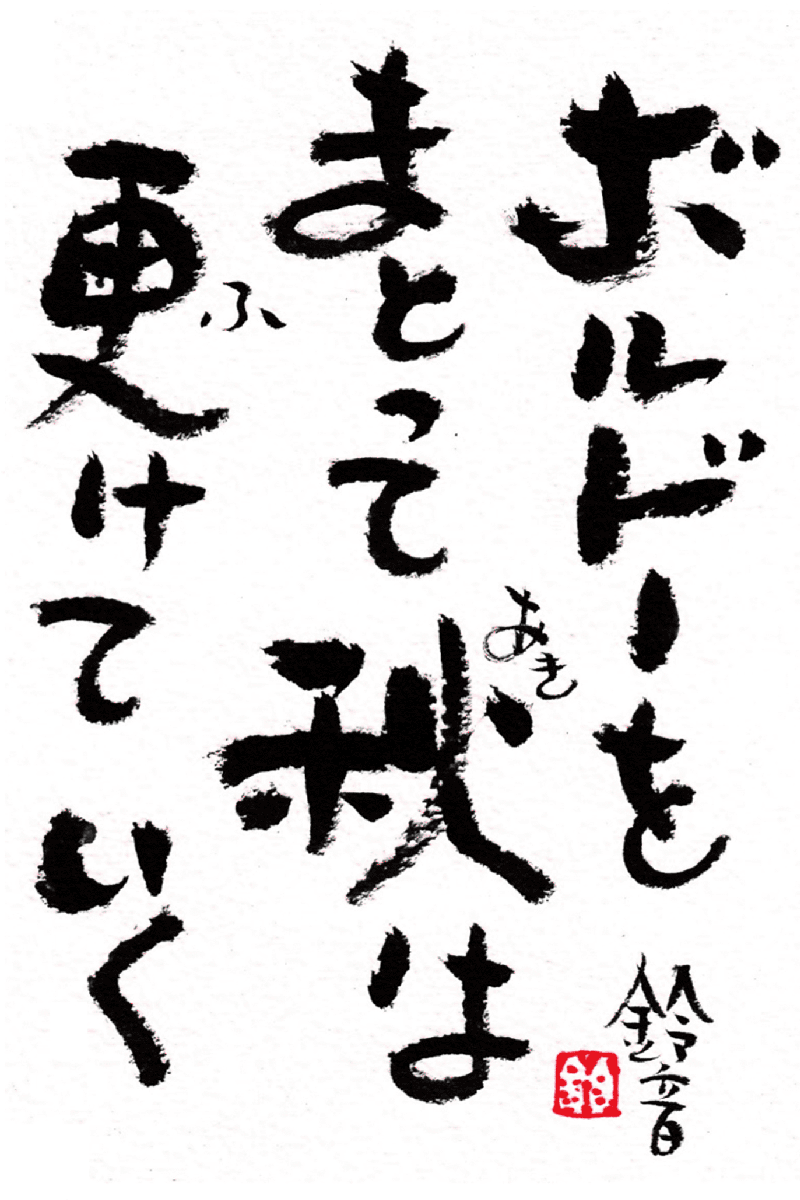 ボルドーを
まとって秋は
あき
更けていく
ふ
鈴音